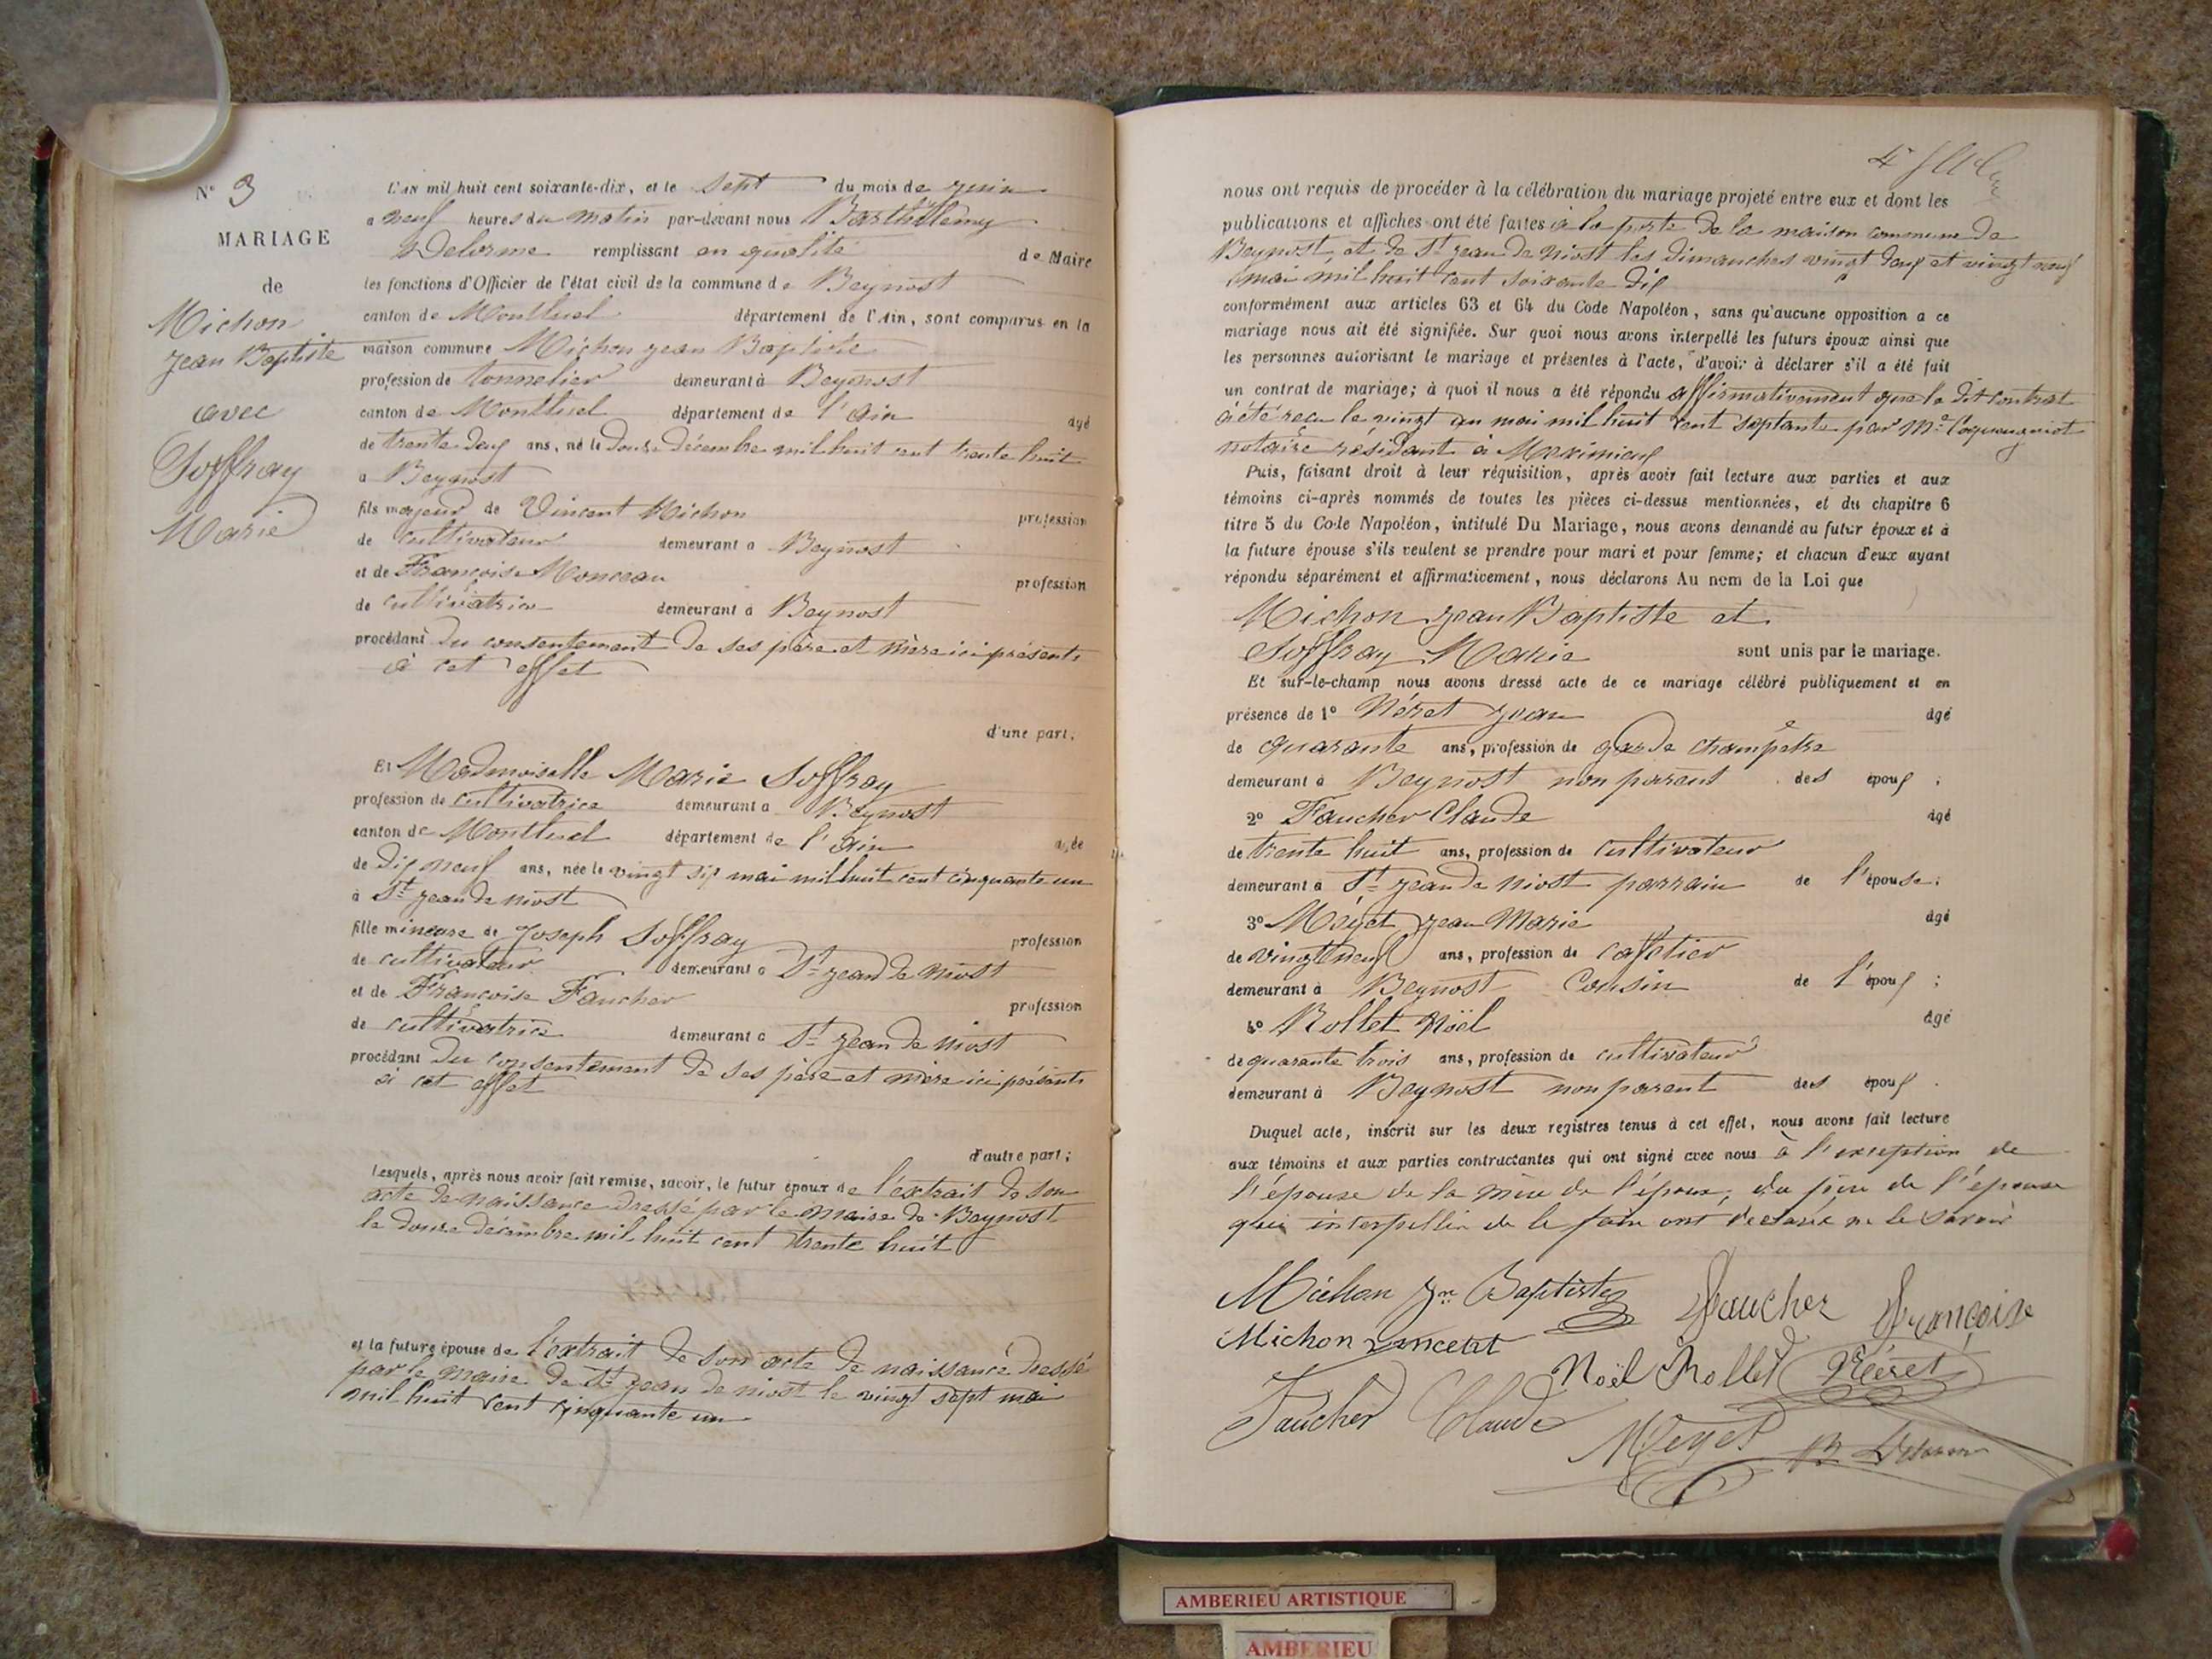 N° 3
MARIAGE
de
Michon
Jean Baptiste
avec
Soffray
Marie
L'an mil huit cent soixante-dix, et le sept du mois de juin
a neuf heures du matin par-devant nous Barthélemy
Delorme remplissant en qualité de Maire
les fonctions d'Officier de l'état civil de la commune de Beynost
canton de Montluel département de l'Ain, sont comparus en la
maison commune Michon Jean Baptiste
profession de tonnelier demeurant à Beynost
canton de Montluel département de l'Ain âgé
de trente deux ans, né le douze décembre mil huit cent trente huit
a Beynost
fils majeur de Vincent Michon profession
de cultivateur demeurant a Beynost
et de Françoise Monceau profession
de cultivatrice demeurant à Beynost
procédant du consentement de ses père et mère ici présents
à cet effet
d'une part,
Et Mademoiselle Marie Soffray
profession de cultivatrice demeurant a Beynost
canton de Montluel département de l'Ain agée
de dix neuf ans, née le vingt six mai mil huit cent cinquante un
à St Jean de Niost
fille mineure de Joseph Soffray profession
de cultivateur demeurant a St Jean de Niost
et de Françoise Faucher profession
de cultivatrice demeurant a St Jean de Niost
procédant du consentement de ses père et mère ici présents
à cet effet
d'autre part;
Lesquels, après nous avoir fait remise, savoir, le futur époux de l'extrait de son
acte de naissance dressé par le maire de Beynost
le douze décembre mil huit cent trente huit
et la future épouse de l'extrait de son acte de naissance dressé
par le maire de St Jean de Niost le vingt sept mai
mil huit cent cinquante un
nous ont requis de procéder à la célébration du mariage projeté entre eux et dont les
publications et affiches ont été faites à la porte de la maison commune de
Beynost, et de St Jean de Niost les dimanches vingt deux et vingt neuf
mai mil huit cent soixante dix
conformément aux articles 63 et 64 du Code Napoléon, sans qu'aucune opposition a ce
mariage nous ait été signifiée. Sur quoi nous avons interpellé les futurs époux ainsi que
les personnes autorisant le mariage et présentes à l'acte, d'avoir à déclarer s'il a été fait
un contrat de mariage; à quoi il nous a été répondu affirmativement que le dit contrat
a été reçu le vingt un mai mil huit cent septante par Me
notaire résidant à Meximieux
Puis, faisant droit à leur réquisition, après avoir fait lecture aux parties et aux
témoins ci-après nommés de toutes les pièces ci-dessus mentionnées, et du chapitre 6
titre 5 du Code Napoléon, intitulé Du Mariage, nous avons demandé au futur époux et à
la future épouse s'ils veulent se prendre pour mari et pour femme; et chacun d'eux ayant
répondu séparément et affirmativement, nous déclarons Au nom de la Loi que
Michon Jean Baptiste et
Soffray Marie sont unis par le mariage.
Et sur-le-champ nous avons dressé acte de ce mariage célébré publiquement et en
présence de 1° Néret Jean âgé
de quarante ans, profession de garde champêtre
demeurant à Beynost non parent des époux ;
2° Faucher Claude âgé
de trente huit ans, profession de cultivateur
demeurant à St Jean de Niost parrain de l'épouse;
3° Méyet Jean Marie âgé
de vingt neuf ans, profession de cafetier
demeurant à Beynost Cousin de l'époux ;
4° Rollet Noël âgé
de quarante trois ans, profession de cultivateur
demeurant à Beynost non parent des époux .
Duquel acte, inscrit sur les deux registres tenus à cet effet, nous avons fait lecture
aux témoins et aux parties contractantes qui ont signé avec nous à l'exception de
l'épouse de la mère de l'époux, du père de l'épouse
qui de le faire ont déclaré ne le savoir
Michon Jn Baptiste Faucher Françoise
Michon Vincent
Noël Rollet Néret
Faucher Claude
Meyet B Delorme
AMBERIEU ARTISTIQUE
AMBERIEU